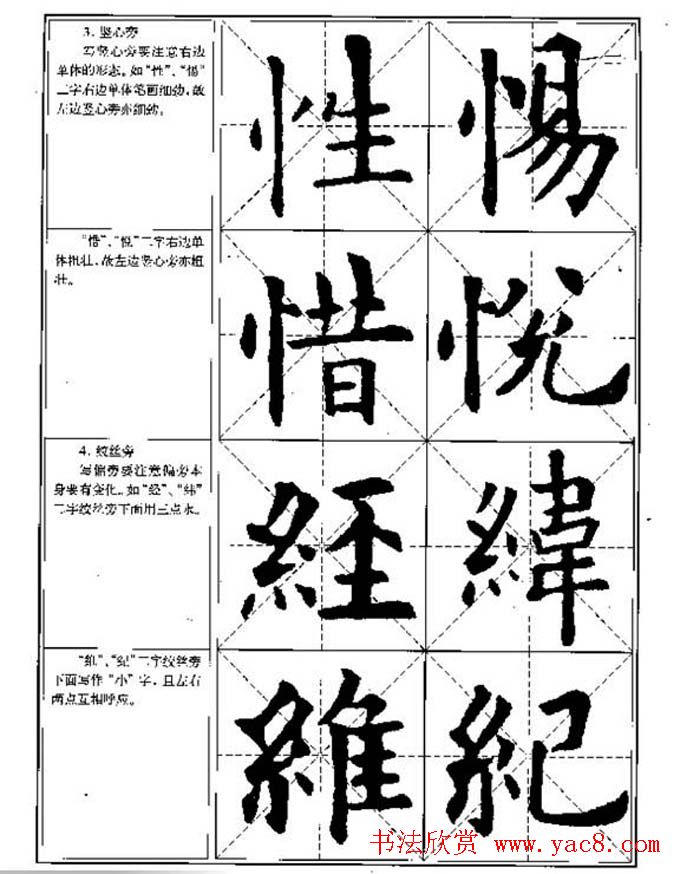 3. 竖心旁
写竖心旁要注意右边
单体的形态。如“性”、“惕”
二字右边单体笔画细劲，故
左边竖心旁亦细劲。
性 惕
“惜”、“悦”二字右边单
体粗壮，故左边竖心旁亦粗
壮。
惜 悦
4. 绞丝旁
写偏旁要注意偏旁本
身要有变化。如“经”、“纬”
二字绞丝旁下面用三点水。
經 緯
“维”、“纪”二字绞丝旁
下面写作“小”字，且左右
两点互相呼应。
維 紀
书法欣赏 www.yac8.com